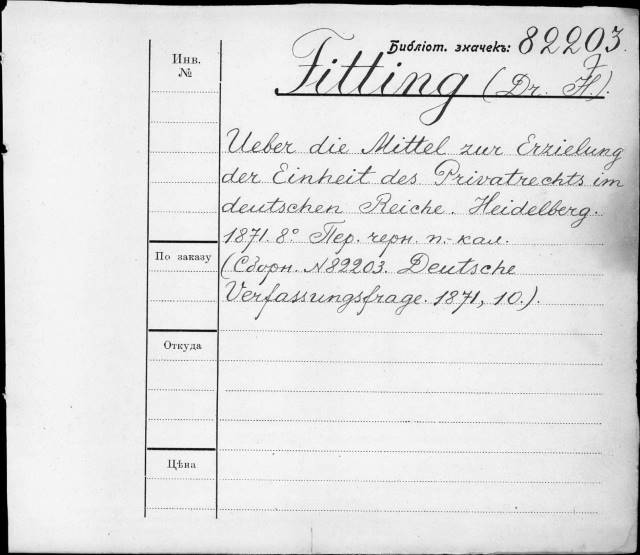 Библіот. значекъ: 82203.
7
Инв.
№
Fitting (Dr. H.).
Ueber die Mittel zur Erzielung
der Einheit des Privatrechts im
deutschen Reiche. Heidelberg.
1871. 8° Пер. черн. п.-кал.
(Сборн. №82203. Deutsche
Verfassungsfrage. 1871, 10.).
По заказу
Откуда
Цѣна